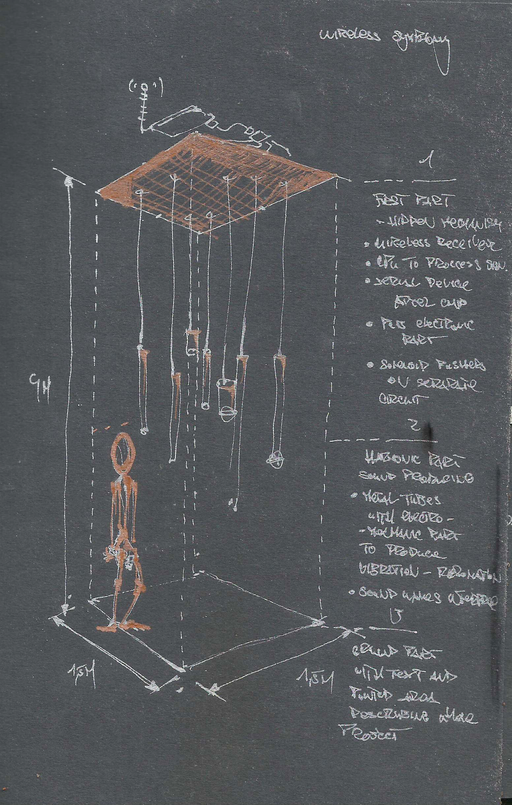 wireless symphony
1
FIRST PART
- HIDDEN MECHANISM
• WIRELESS RECEIVER
• CPU TO PROCESS
• SERIAL DEVICE
CHIP
• ELECTRONIC
PART
• SOLENOID PUSHERS
ON SEPARATE
CIRCUIT
2
PART
SOUND PRODUCING
• METAL TUBES
WITH ELECTRO -
- MECHANIC PART
TO PRODUCE
VIBRATION -
• SOUND WAVES
3
GROUND PART
WITH TEXT AND
AREA
DESCRIBING WHOLE
PROJECT
4M
1,5M
1,5M